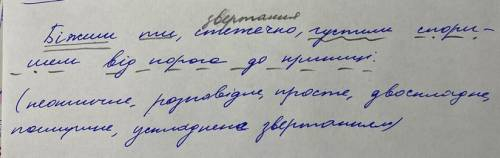 звертання
Біжиш ти, стежечко, густим спори-
шем від порога до криниці.
(неокличне, розповідне, просте, двоскладне,
поширене, ускладнене звертанням)